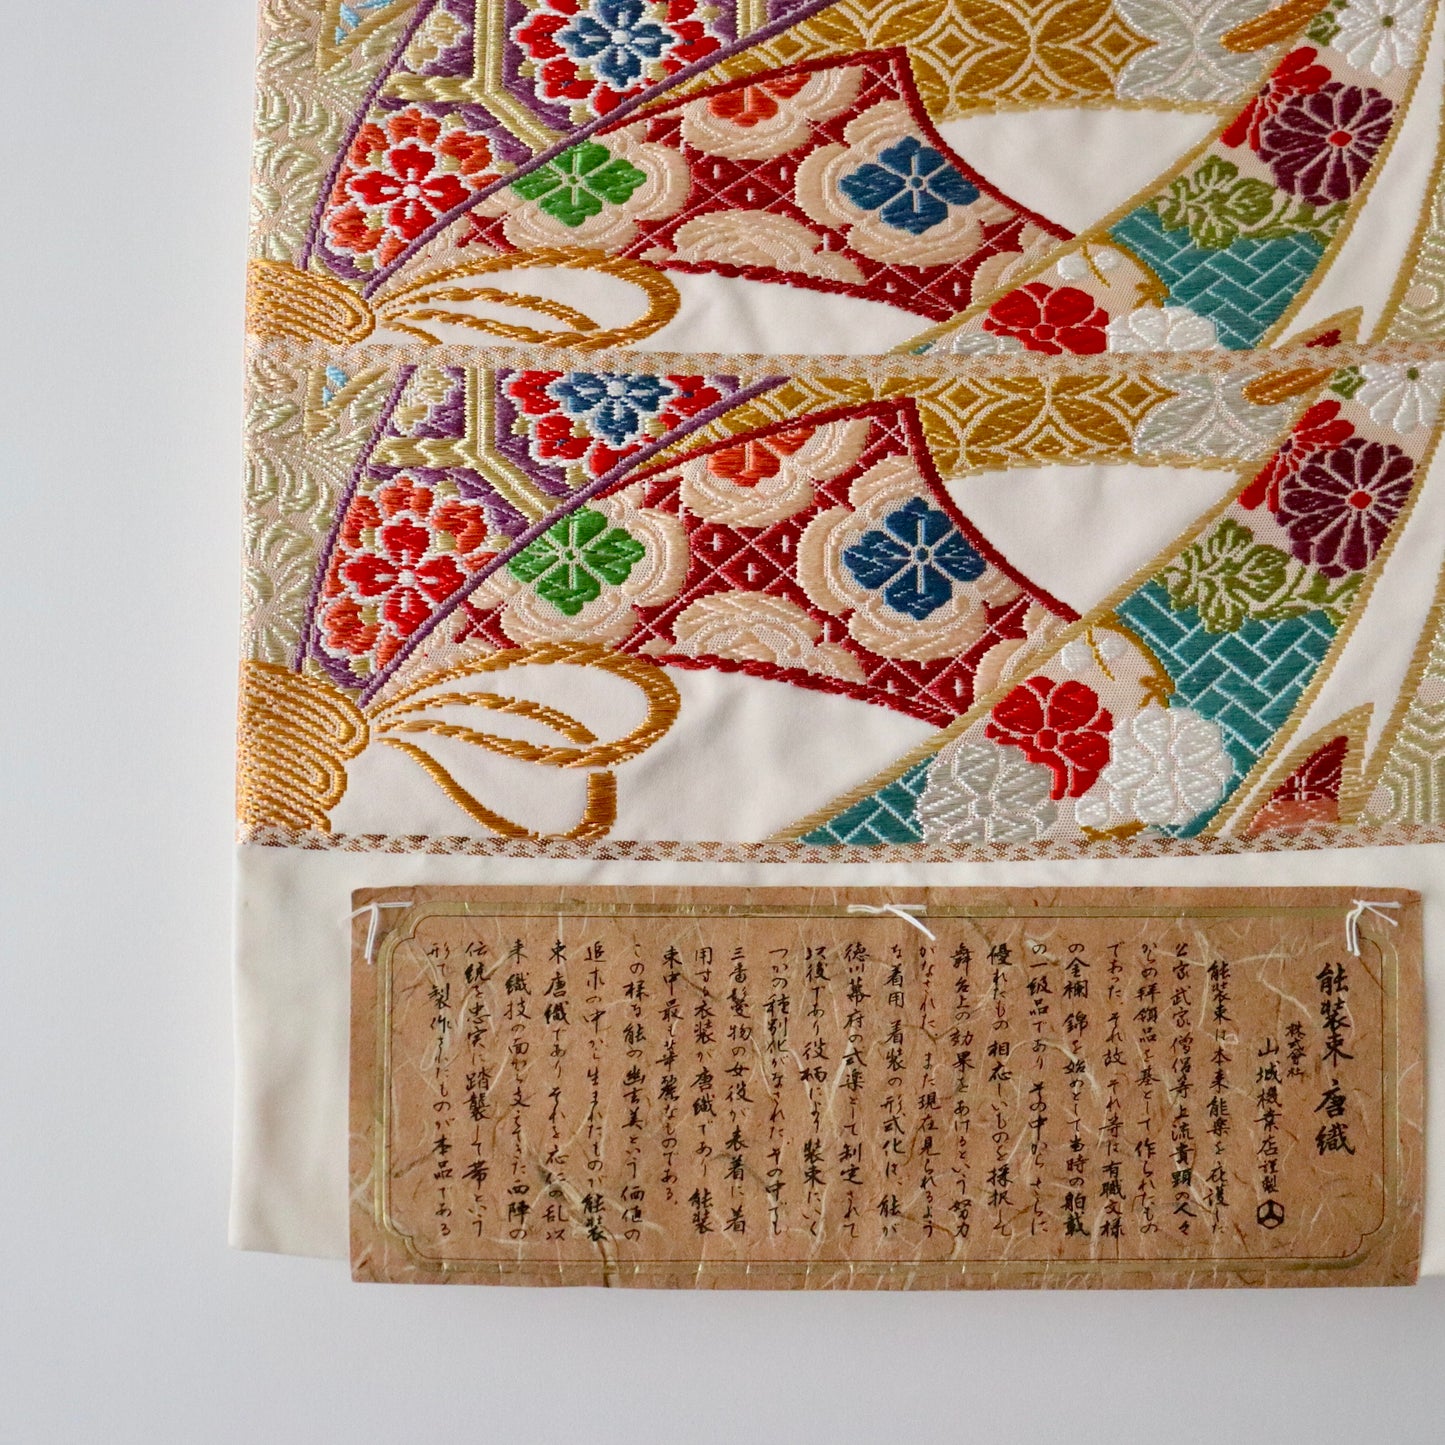 能装束 唐織
株式会社
山城機業店謹製
能装束は本来能楽を庇護した
公家武家僧侶等上流貴顕の人々
からの拝領品を基として作られたもの
であった、それ故、それ等は有職文様
の金襴、錦を始めとして当時の舶載
の一級品であり、その中からさらに
優れたもの相応しいものを採択して
舞台上の効果をあげるという努力
がなされた、また現在見られるよう
な着用、着装の形式化は、能が
徳川幕府の式楽として制定されて
以後であり役柄により装束にいく
つかの種別化がなされた、その中でも
三番鬘物の女役が表着に着
用する衣装が唐織であり、能装
束中最も華麗なものである。
この様な能の幽玄美という価値の
追求の中から生まれたものが能装
束唐織であり、それを応仁の乱以
来織技の面から支えてきた西陣の
伝統を忠実に踏襲して帯という
形で製作されたものが本品である